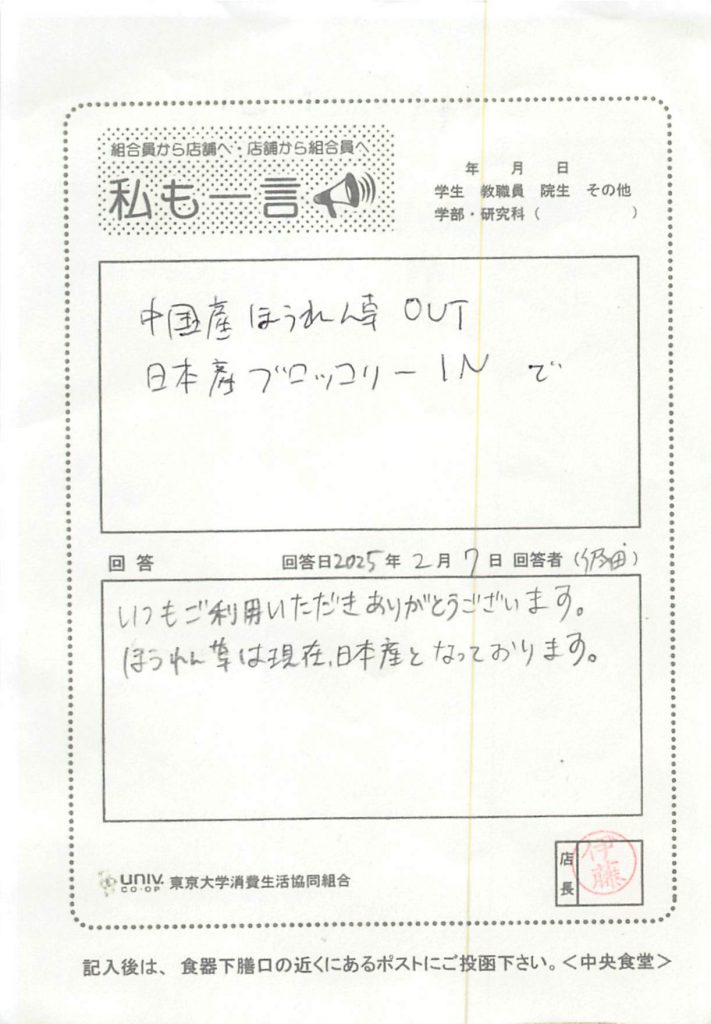 組合員から店舗へ・店舗から組合員へ
私も一言
年 月 日
学生 教職員 院生 その他
学部・研究科( )
中国産ほうれん草 OUT
日本産ブロッコリー IN で
回答 回答日2025年2月7日 回答者( )
いつもご利用いただきありがとうございます。
ほうれん草は現在、日本産となっております。
UNIV. CO-OP 東京大学消費生活協同組合
店長 伊藤
記入後は、食器下膳口の近くにあるポストにご投函下さい。<中央食堂>